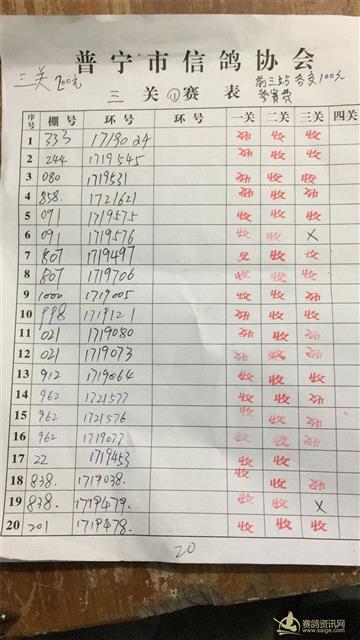 普宁市信鸽协会
三关 200元
前三站各交100元
参赛费
三关①赛表
序号 棚号 环号 环号 一关 二关 三关 四关
1 333 1719024 收 收
2 244 1719545 收
3 080 1719531 收 收
4 858. 1721621 收
5 091 1719575 收 收 收
6 091 1719576 收 收 X
7 807 1719497 收 收
8 807 1719706 收 收 收
9 1000 1719005 收 收
10 998 1719121 收 收
11 021 1719080 收
12 021 1719073 收
13 912 1719064 收 收 收
14 962 1721577 收 收
15 962 1721576 收 收
16 962 1719077 收
17 22 1719453 收 收
18 838. 1719038. 收 收
19 838. 1719479. 收 收 X
20 201 1719478. 收 收 收
20
赛鸽资讯网
www.saige.com